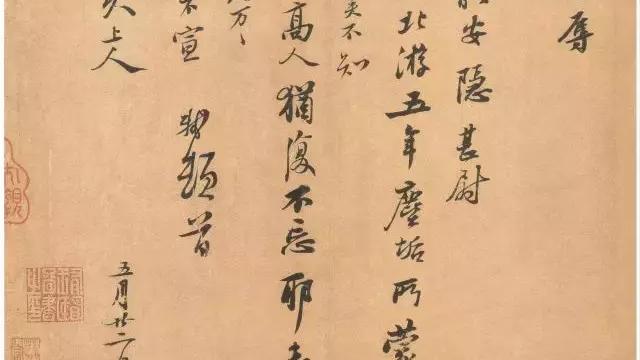 辱
安隱甚尉
北游五年塵垢所蒙
矣不知
高人猶復不忘耶未
不宣 軾頓首
久上人
五月廿二日